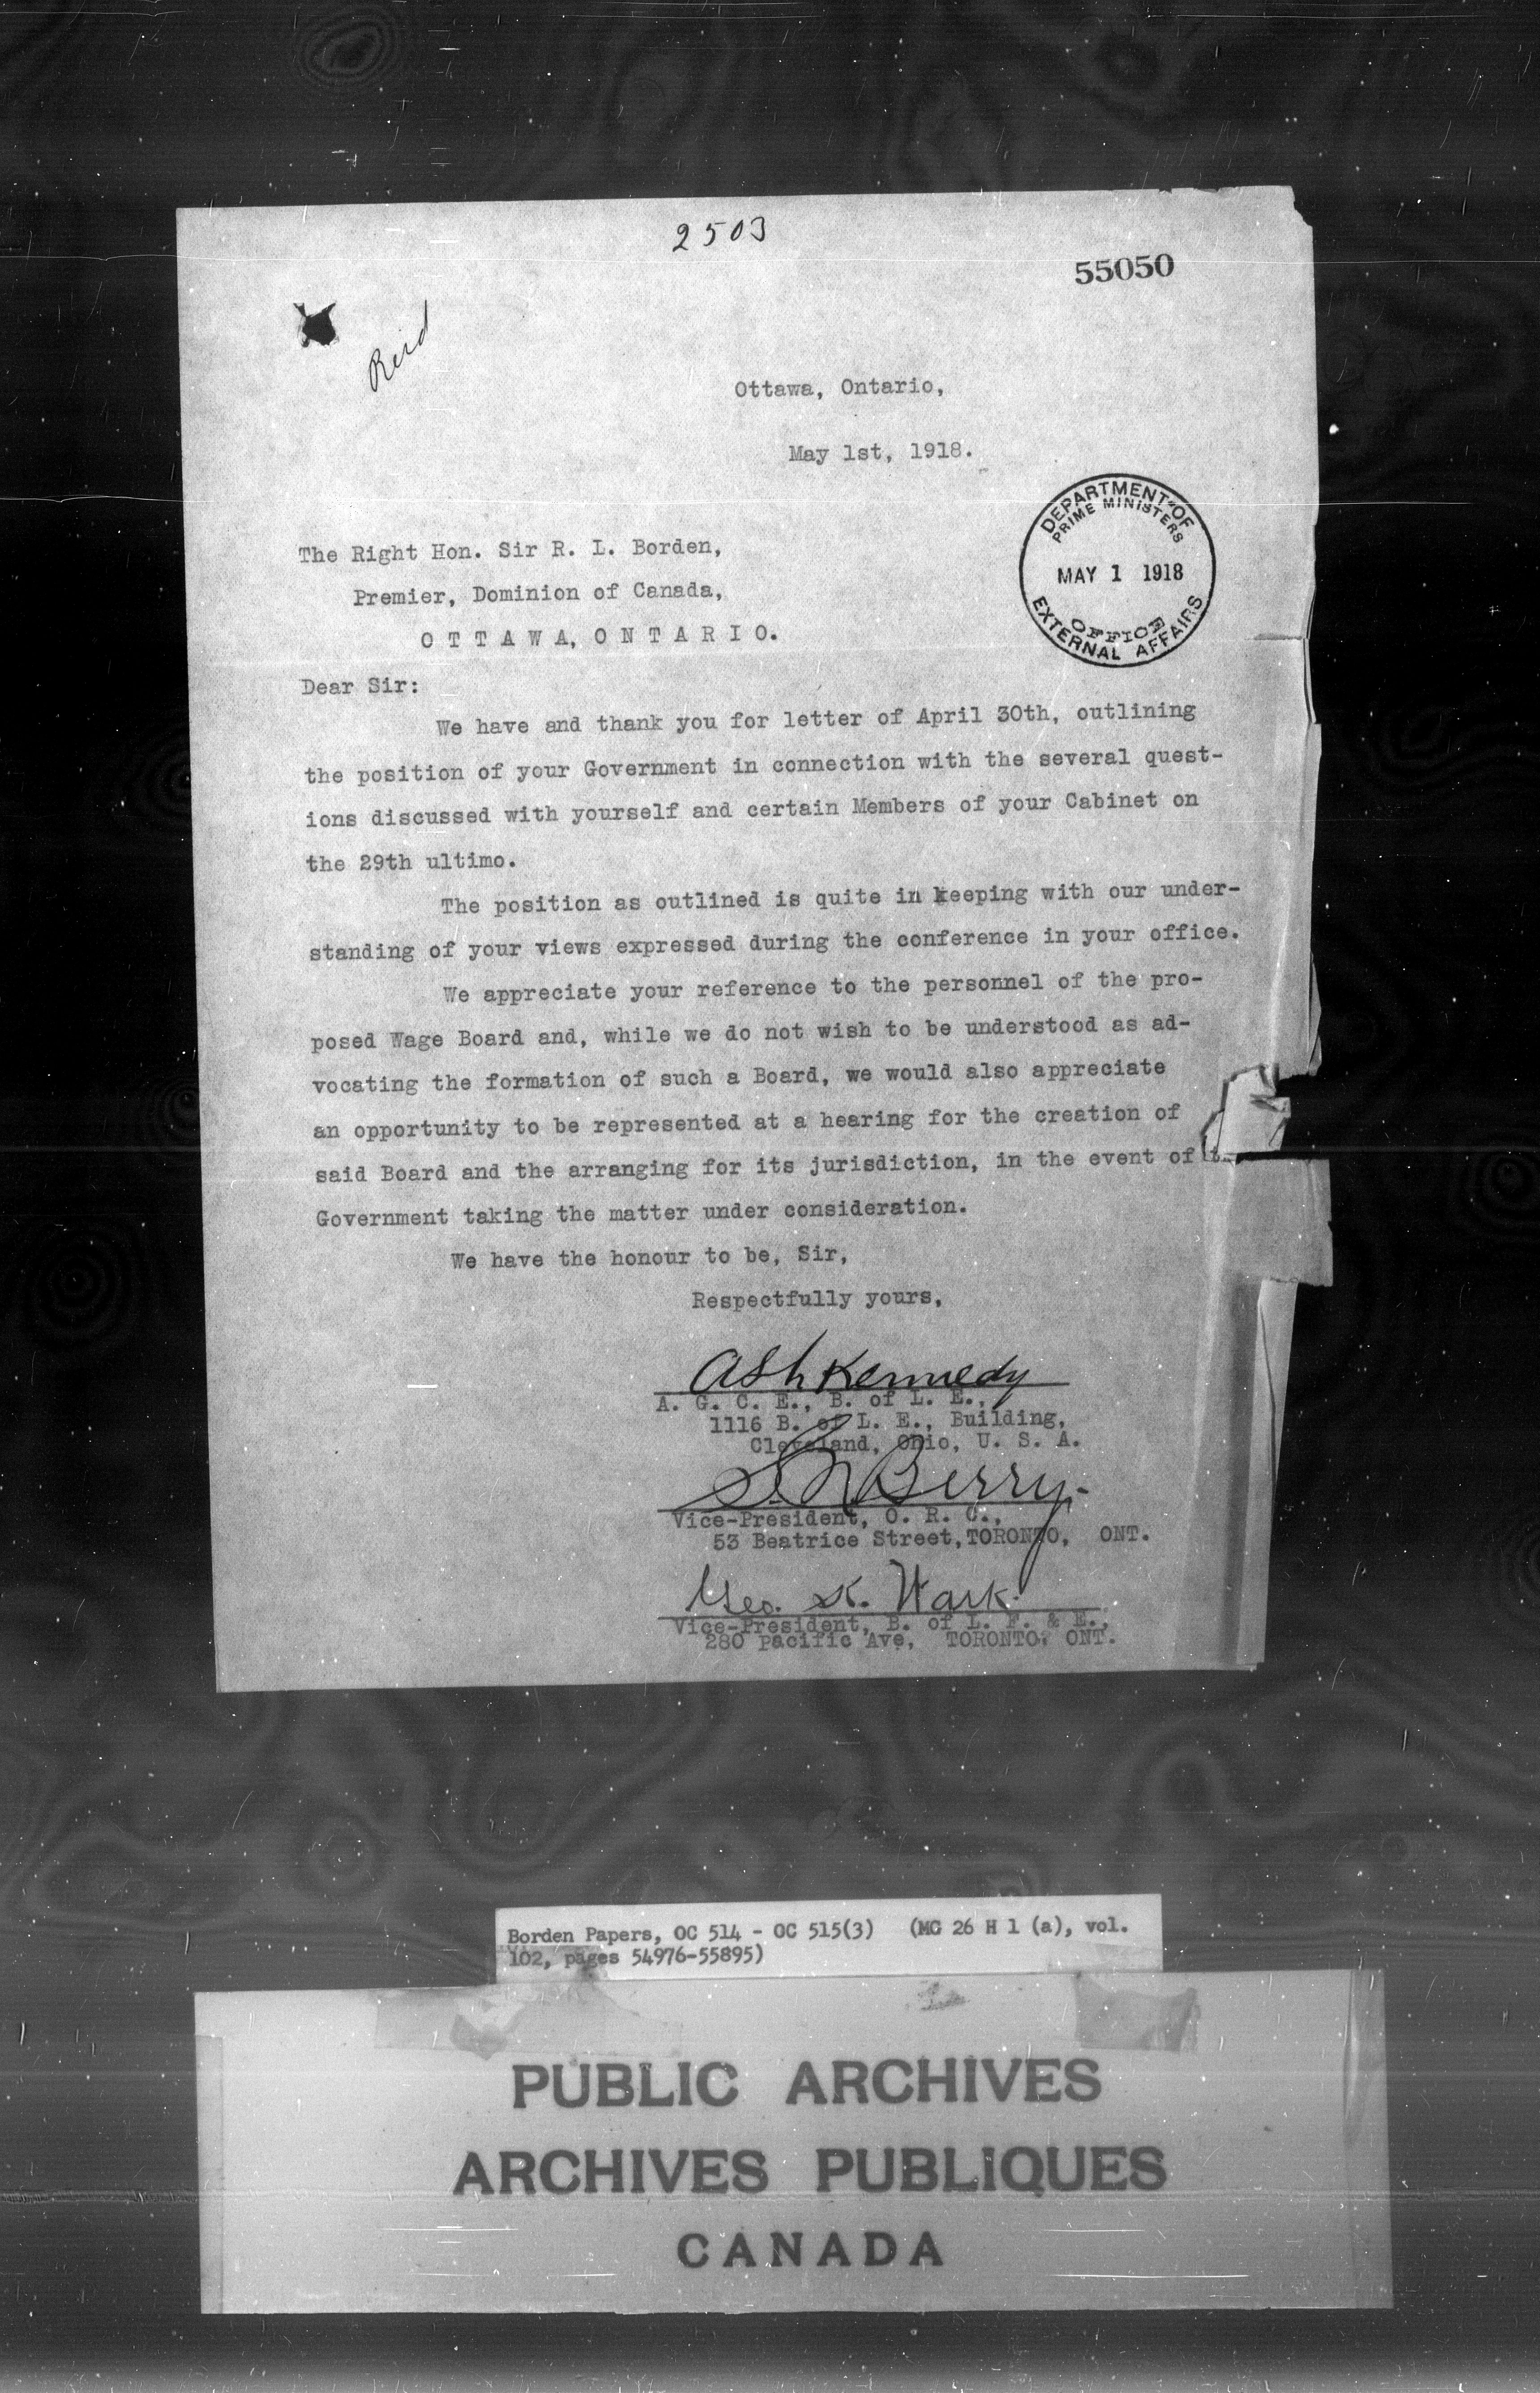 2503
55050
Reid
Ottawa, Ontario,
May 1st, 1918.
DEPARTMENT OF
PRIME MINISTERS
MAY 1 1918
OFFICE
EXTERNAL AFFAIRS
The Right Hon. Sir R. L. Borden,
Premier, Dominion of Canada,
O T T A W A, O N T A R I O.
Dear Sir:
We have and thank you for letter of April 30th, outlining
the position of your Government in connection with the several quest-
ions discussed with yourself and certain Members of your Cabinet on
the 29th ultimo.
The position as outlined is quite in keeping with our under-
standing of your views expressed during the conference in your office.
We appreciate your reference to the personnel of the pro-
posed Wage Board and, while we do not wish to be understood as ad-
vocating the formation of such a Board, we would also appreciate
an opportunity to be represented at a hearing for the creation of
said Board and the arranging for its jurisdiction, in the event of
Government taking the matter under consideration.
We have the honour to be, Sir,
Respectfully yours,
Ash Kennedy
A. G. C. E., B. of L. E.,
1116 B. of L. E., Building,
Cleveland, Ohio, U. S. A.
S. N. Berry.
Vice-President, O. R. C.,
53 Beatrice Street, TORONTO, ONT.
Geo. K. Wark.
Vice-President, B. of L. F. & E.,
280 Pacific Ave, TORONTO, ONT.
Borden Papers, OC 514 - OC 515(3) (MG 26 H 1 (a), vol.
102, pages 54976-55895)
PUBLIC ARCHIVES
ARCHIVES PUBLIQUES
CANADA